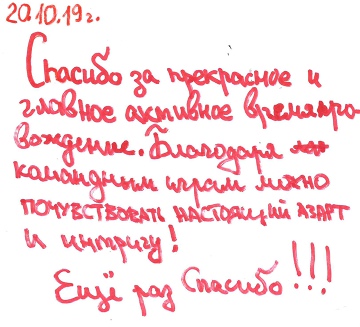 20.10.19г.
Спасибо за прекрасное и
главное активное времяпро-
вождение. Благодаря
командным играм можно
ПОЧУВСТВОВАТЬ НАСТОЯЩИЙ АЗАРТ
и интригу!
Ещё раз Спасибо!!!